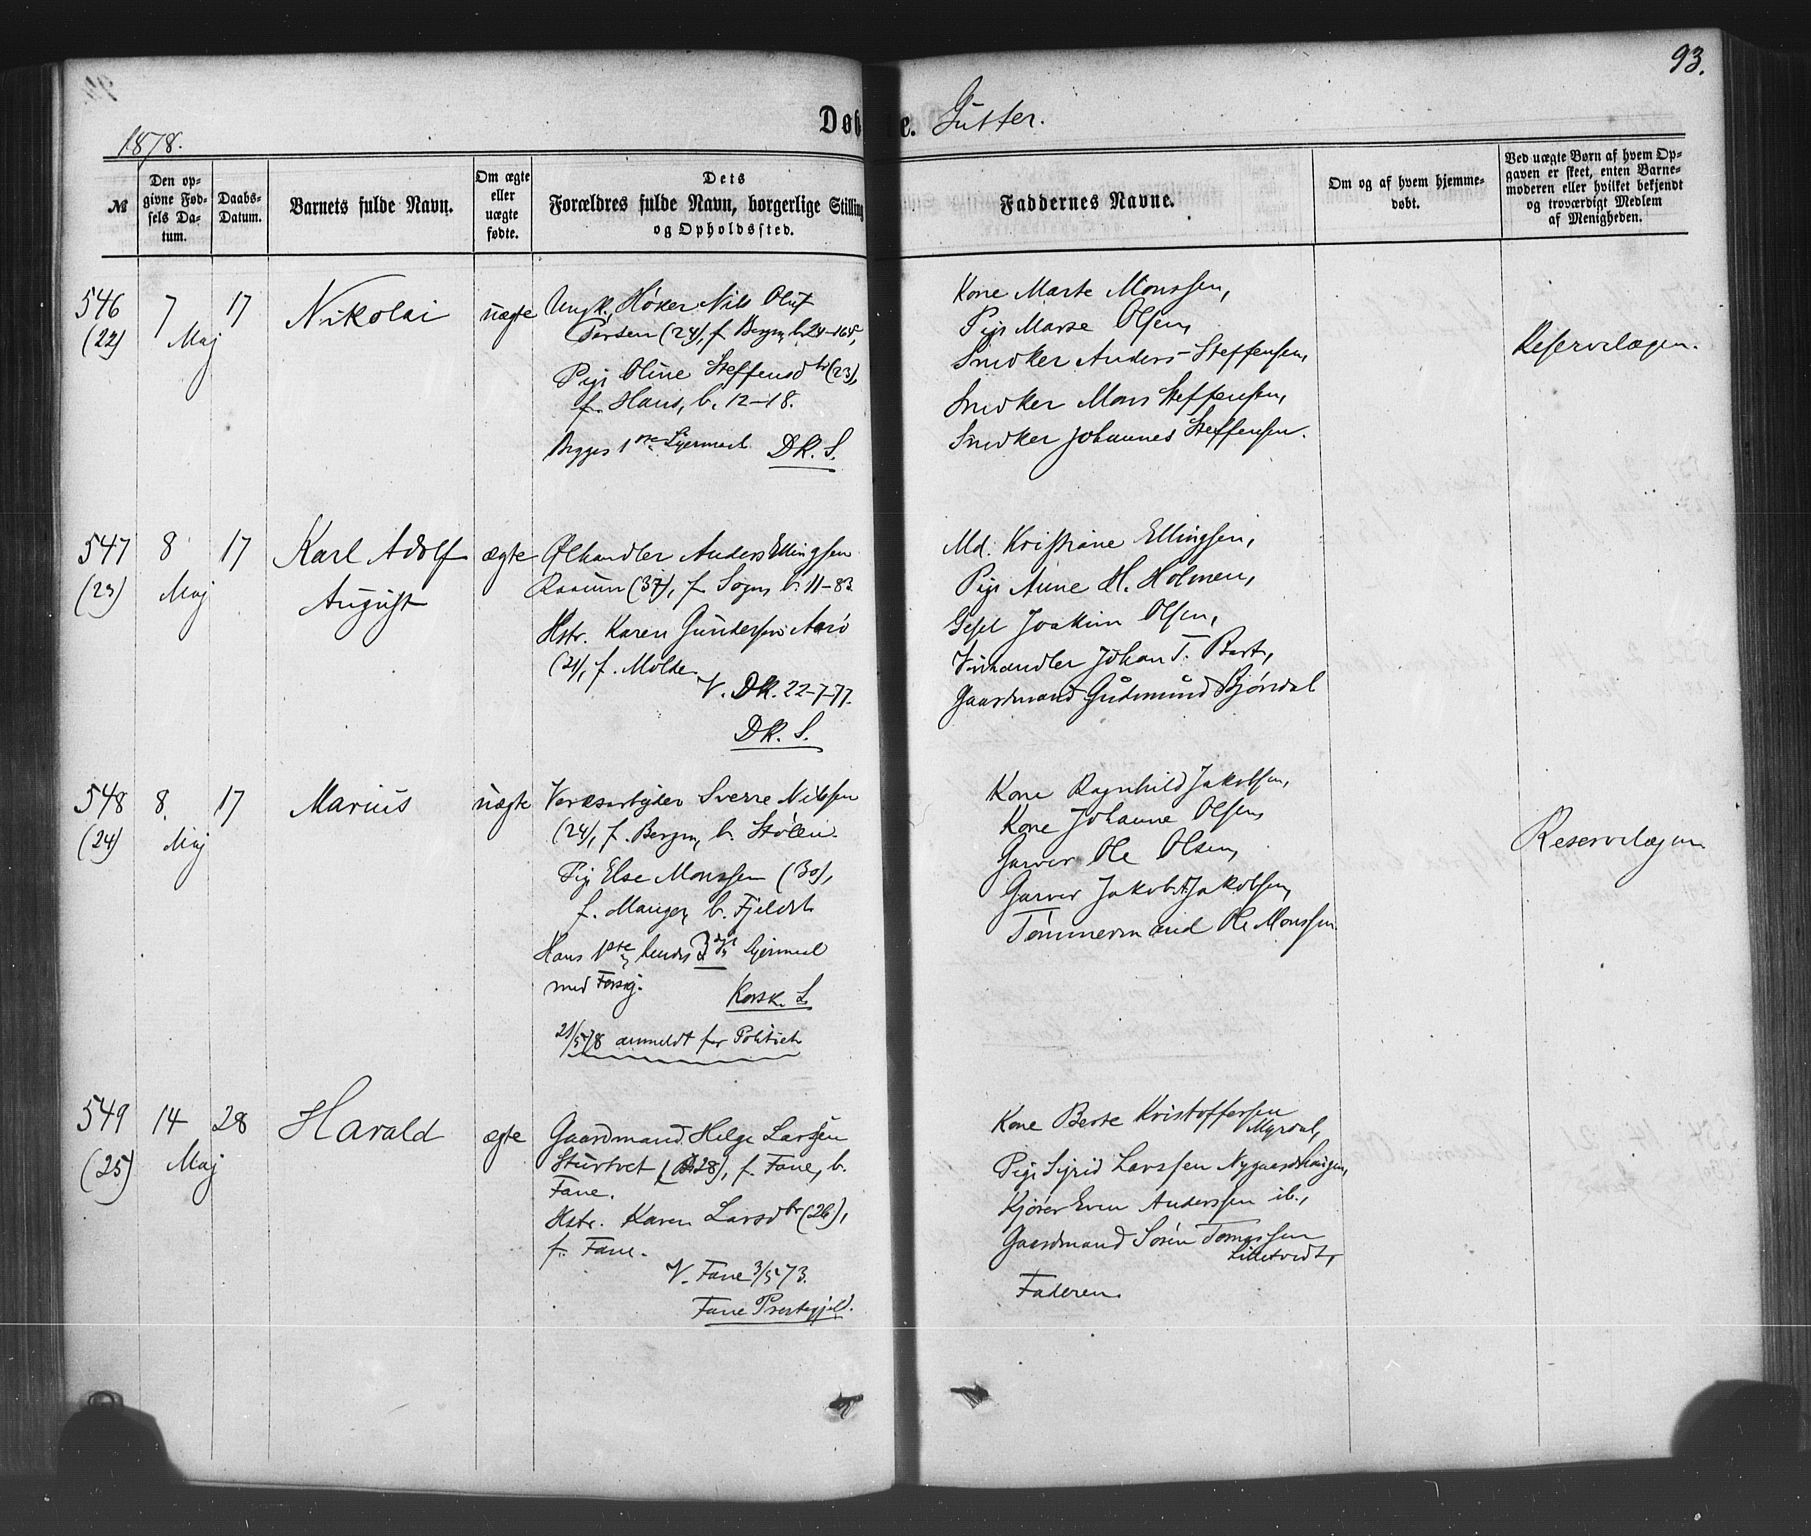 93.
1878.
Døbte. Gutter.
№
Den op-
givne Fød-
sels Da-
tum.
Daabs-
Datum.
Barnets fulde Navn.
Om ægte
eller
uægte
fødte.
Dets
Forældres fulde Navn, borgerlige Stilling
og Opholdssted.
Faddernes Navne.
Om og af hvem hjemme-
døbt.
Ved uægte Børn af hvem Op-
gaven er skeet, enten Barne-
moderen eller hvilket bekjendt
og troværdigt Medlem
af Menigheden.
546
(22)
7
Maj
17
Nikolai
uægte
Ungk. Høker Nils Oluf
(24), f. Bergen, b. 24-165,
Pige Oline Steffensdtr (23),
f. Haus, b. 12-18.
Begges 1ste Lejermaal. DK. S.
Kone Marte Monssen,
Pige Marte Olsen,
Snedker Anders Steffensen,
Snedker Mons Steffensen,
Snedker Johannes Steffensen.
Reservelægen.
547
(23)
8
Maj
17
Karl Adolf
August
ægte
Ølhandler Anders Ellingsen
(37), f. Sogn, b. 11-83.
Hstr. Karen Gundersen Aarø
(21), f. Molde.
V. DK. 22-7-77.
DK. S.
Md. Kristiane Ellingsen,
Pige Anne H. Holmen,
Joakim Olsen,
Vinhandler Johan T. Bart,
Gaardmand Gudmund Bjørdal
548
(24)
8
Maj
17
Marius
uægte
Verksarbejder Sverre Nilssen
(24), f. Bergen, b. Stølen.
Pige Else Monssen (30),
f. Manger, b. Fjeldet
Hans 1ste, hendes 3die Lejermaal
med Forsig.
Korsk. S.
21/5 78 anmeldt for Politiet
Kone Ragnhild Jakobsen,
Kone Johanne Olsen,
Garver Ole Olsen,
Garver Jakob A. Jakobsen,
Tømmermand Ole Monssen.
Reservelægen
549
(25)
14
Maj
28
Harald
ægte
Gaardmand Helge Larssen
Sturtvet (28), f. Fane, b.
Fane.
Hstr. Karen Larsdtr (26),
f. Fane.
V. Fane 3/5 73.
Fane Prestegjeld.
Kone Berte Kristoffersen
Myrdal,
Pige Sigrid Larssen Nygaardshaugen,
Kjører Even Anderssen ib.,
Gaardmand Søren Tomassen
Lilletvedt,
Faderen.